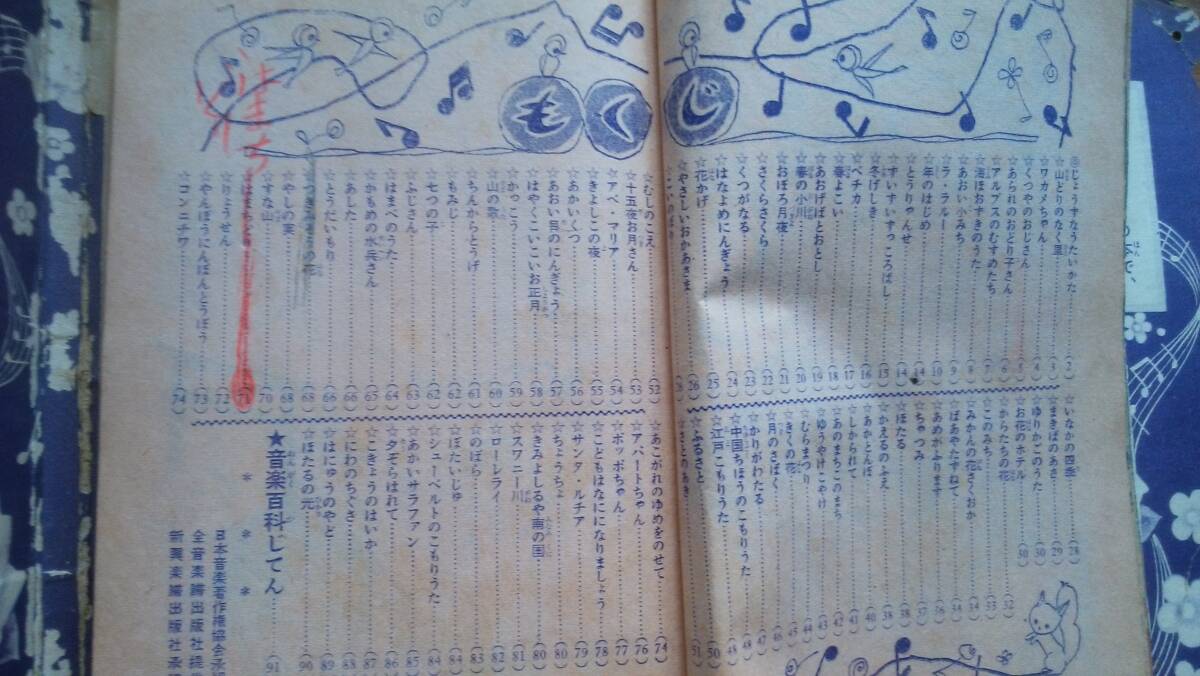 もくじ
◎じょうずなうたいかた……(2)
☆山どりのなく里
☆ワカメちゃん
☆くつやのおじさん
☆あられのおどり子さん……(6)
☆アルプスのむすめたち
☆海ほおずきのうた
☆あおい小みち
☆ラ・ラルー
☆年のはじめ
☆とうりゃんせ……(14)
☆すいすいすっころばし
☆冬げしき
☆ペチカ
☆春よこい
☆あおげばとおとし
☆春の小川……(20)
☆おぼろ月夜……(21)
☆さくらさくら……(22)
☆くつがなる……(23)
☆はなよめにんぎょう……(24)
☆花かげ……(25)
☆やさしいおかあさま……(26)
☆こいのぼり
☆いなかの四季……(28)
☆まきばのあさ……(29)
☆ゆりかごのうた……(30)
☆お花のホテル……(30)
☆からたちの花……(32)
☆このみち……(33)
☆みかんの花さくおか……(34)
☆ばあやたずねて
☆あめがふります
☆ちゃつみ
☆ほたる
☆かえるのふえ
☆あかとんぼ
☆しかられて
☆あのまちこのまち
☆ゆうやけこやけ
☆むらまつり
☆きくの花
☆月のさばく
☆かりがわたる
☆中国ちほうのこもりうた
☆江戸こもりうた……(50)
☆ふるさと……(51)
☆さとのあき
☆むしのこえ……(52)
☆十五夜お月さん……(53)
☆アベ・マリア……(54)
☆きよしこの夜……(55)
☆あかいくつ……(56)
☆あおい目のにんぎょう……(57)
☆はやくこいこいお正月……(58)
☆かっこう……(59)
☆山の歌……(60)
☆ちんからとうげ……(61)
☆もみじ……(62)
☆七つの子……(62)
☆ふじさん……(63)
☆はまべのうた……(64)
☆かもめの水兵さん……(65)
☆あした……(66)
☆とうだいもり……(66)
☆つきみそうの花……(68)
☆やしの実……(68)
☆すな山……(70)
☆はまちどり……(71)
☆りょうせん……(72)
☆やんぼうにんぼんとうぼう……(73)
☆コンニチワ……(74)
☆あこがれのゆめをのせて……(74)
☆アパートちゃん……(76)
☆ポッポちゃん……(77)
☆こどもはなにになりましょう……(78)
☆サンタ・ルチア……(79)
☆ちょうちょ……(80)
☆きみよしるや南の国……(80)
☆スワニー川……(81)
☆ローレライ……(82)
☆のばら……(83)
☆ぼだいじゅ……(84)
☆シューベルトのこもりうた……(84)
☆あかいサラファン……(85)
☆夕ぞらはれて……(86)
☆こきょうのはいか……(87)
☆にわのちぐさ……(88)
☆はにゅうのやど……(89)
☆ほたるの元……(90)
★音楽百科じてん……(91)
＊ ＊ ＊
日本音楽著作権協会承
全音楽譜出版社提
新興楽譜出版社承